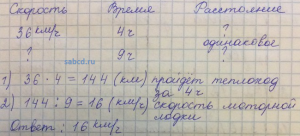 Скорость Время Расстояние
36 км/ч 4ч ?
одинаковое
? 9ч ?
sabcd.ru
1) 36 · 4 = 144 (км) пройдет теплоход
за 4ч
2) 144 : 9 = 16 (км/ч) скорость моторной
лодки
Ответ: 16 км/ч